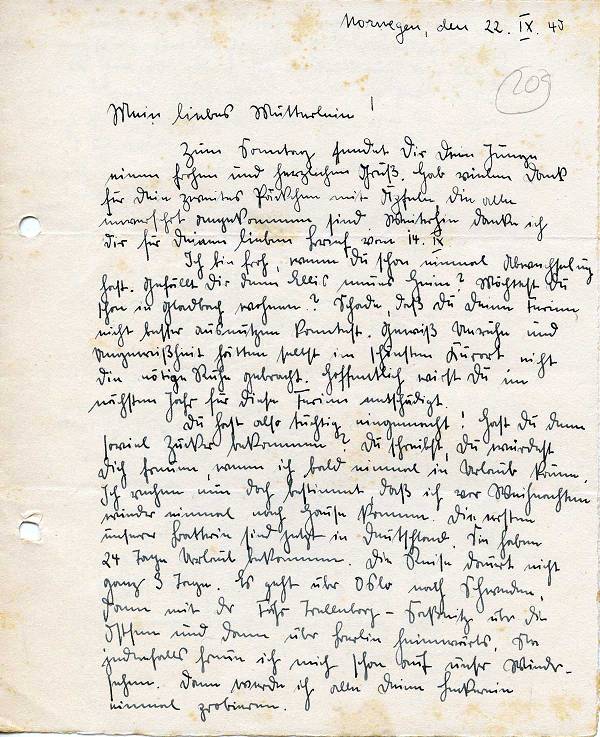 Norwegen, den 22. IX. 40
209
Mein liebes Mütterlein!
Zum Sonntag sendet Dir Dein Junge
einen frohen und herzlichen Gruß. Hab vielen Dank
für Dein zweites Päckchen mit Äpfeln, die alle
unversehrt angekommen sind. Weiterhin danke ich
Dir für Deinen lieben Brief vom 14. IX.
Ich bin froh, wenn Du schon einmal Abwechselung
hast. Gefällt Dir denn Ellis neues Heim? Möchtest Du
schon in Gladbach wohnen? Schade, daß Du Deine Ferien
nicht besser ausnützen konntest. Gewiß Unruhe und
Ungewißheit hätten selbst im schönsten Kurort nicht
die nötige Ruhe gebracht. Hoffentlich wirst Du im
nächsten Jahr für diese Ferien entschädigt.
Du hast also tüchtig eingemacht! Hast Du denn
soviel Zucker bekommen? Du schreibst, Du würdest
Dich freuen, wenn ich bald einmal in Urlaub käme.
Ich rechne nun doch bestimmt, daß ich vor Weihnachten
wieder einmal nach Hause komme. Die ersten
unserer Batterie sind jetzt in Deutschland. Sie haben
24 Tage Urlaub bekommen. Die Reise dauert nicht
ganz 3 Tage. Es geht über Oslo nach Schweden,
dann mit der Fähre Trelleborg - Saßnitz über die
Ostsee und dann über Berlin heimwärts.
jedenfalls freue ich mich schon auf unser Wieder-
sehen. Dann werde ich alle Deine
einmal probieren.